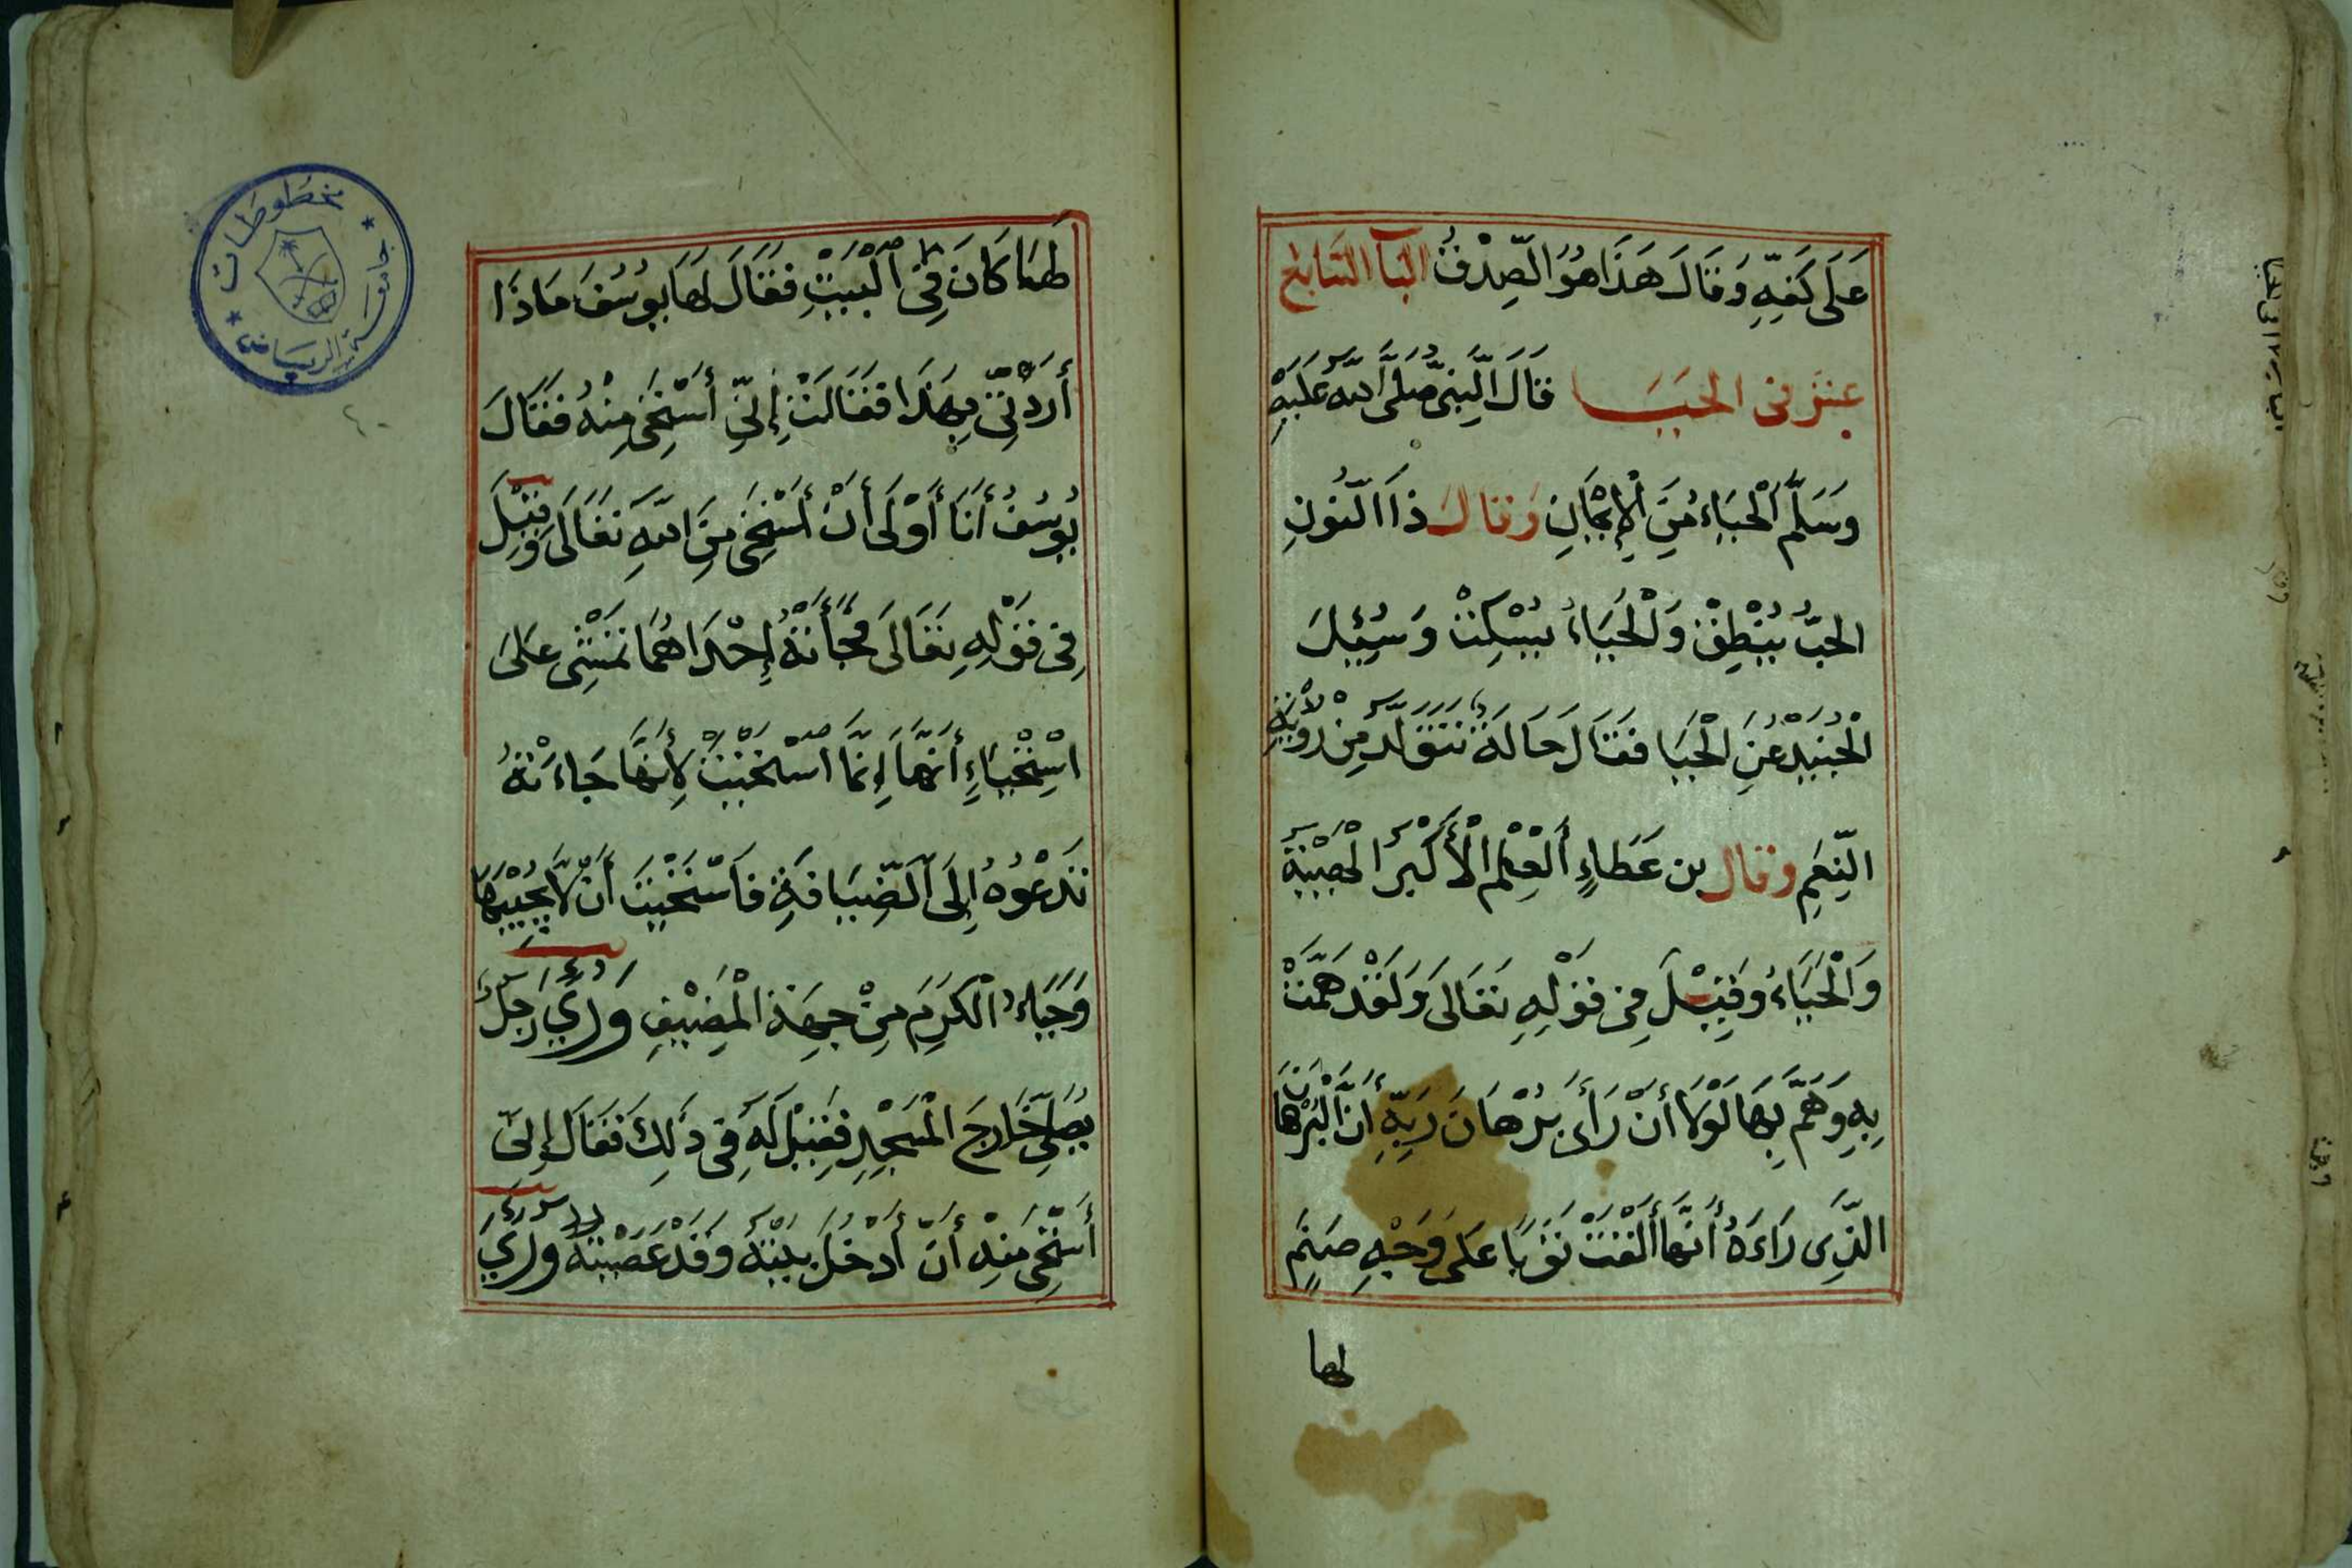 عَلَى كَفِّهِ وَقَالَ هَذَا هُوَ الصِّدْقُ البَابُ السَّابِعُ
عشر في الحيَا قَالَ النَّبِيُّ صَلَّى اللّٰهُ عَلَيْهِ
وَسَلَّمَ اَلْحَيَاءُ مِنَ الْإِيمَانِ وَقَالَ ذَا النُّونِ
الحبُّ يُنْطِقْ وَالْحَيَاءُ يُسْكِتْ وَسُئِلَ
الْجُنَيْدْ عَنِ الْحَيَا فَقَالَ حَالَةٌ تَتَوَلَّدُ مِنْ رُؤْيَةِ
النِّعَمِ وقال بن عَطَاءٍ أَلْعِلْمُ الْأَكْبَرُ الْهَيْبَةُ
وَالْحَيَاءُ وَقِيْلَ فِي قَوْلِهِ تَعَالَى وَلَقَدْ هَمَّتْ
بِهِ وَهَمَّ بِهَا لَوْلَا أَنْ رَأَى بُرْهَانَ رَبِّهِ أَنَّ الْبُرْهَانَ
الَّذِي رَاءَهُ أَنَّهَا أَلْقَتْ ثَوْبًا عَلَى وَجْهِ صَنَمٍ
لها
لَهَا كَانَ فِي الْبَيْتِ فَقَالَ لَهَا يُوسُفَ مَاذَا
أَرَدْتِي بِهَذَا فَقَالَتْ إِنِّي أَسْتَحِي مِنْهُ فَقَالَ
يُوسُفُ أَنَا أَوْلَى أَنْ أَسْتَحِيَ مِنَ اللّٰهِ تَعَالَى وَقِيْلَ
فِي قَوْلِهِ تَعَالَى فَجَأَتْهُ إِحْدَاهُمَا تَمْشِي عَلَى
اسْتِحْيَاءٍ أَنَّهَا إِنَّمَا اسْتَحْيَتْ لِأَنَّهَا جَاءَتْهُ
تَدْعُوْهُ إِلَى الضِّيَافَةِ فَاسْتَحْيَتْ أَنْ لَا يُجِيْبَهَا
وَحَيَاءُ الْكَرَمِ مِنْ جِهَةِ الْمُضِيْفِ وَرُئِيَ رَجُلٌ
يُصَلِّي خَارِجَ الْمَسْجِدِ فَقِيْلَ لَهُ فِي ذَلِكَ فَقَالَ إِنِّي
أَسْتَحِي مِنْهُ أَنْ أَدْخُلَ بَيْتَهُ وَقَدْ عَصَيْتُهُ وَرُئِيَ
جامعة الرياض
مخطوطات